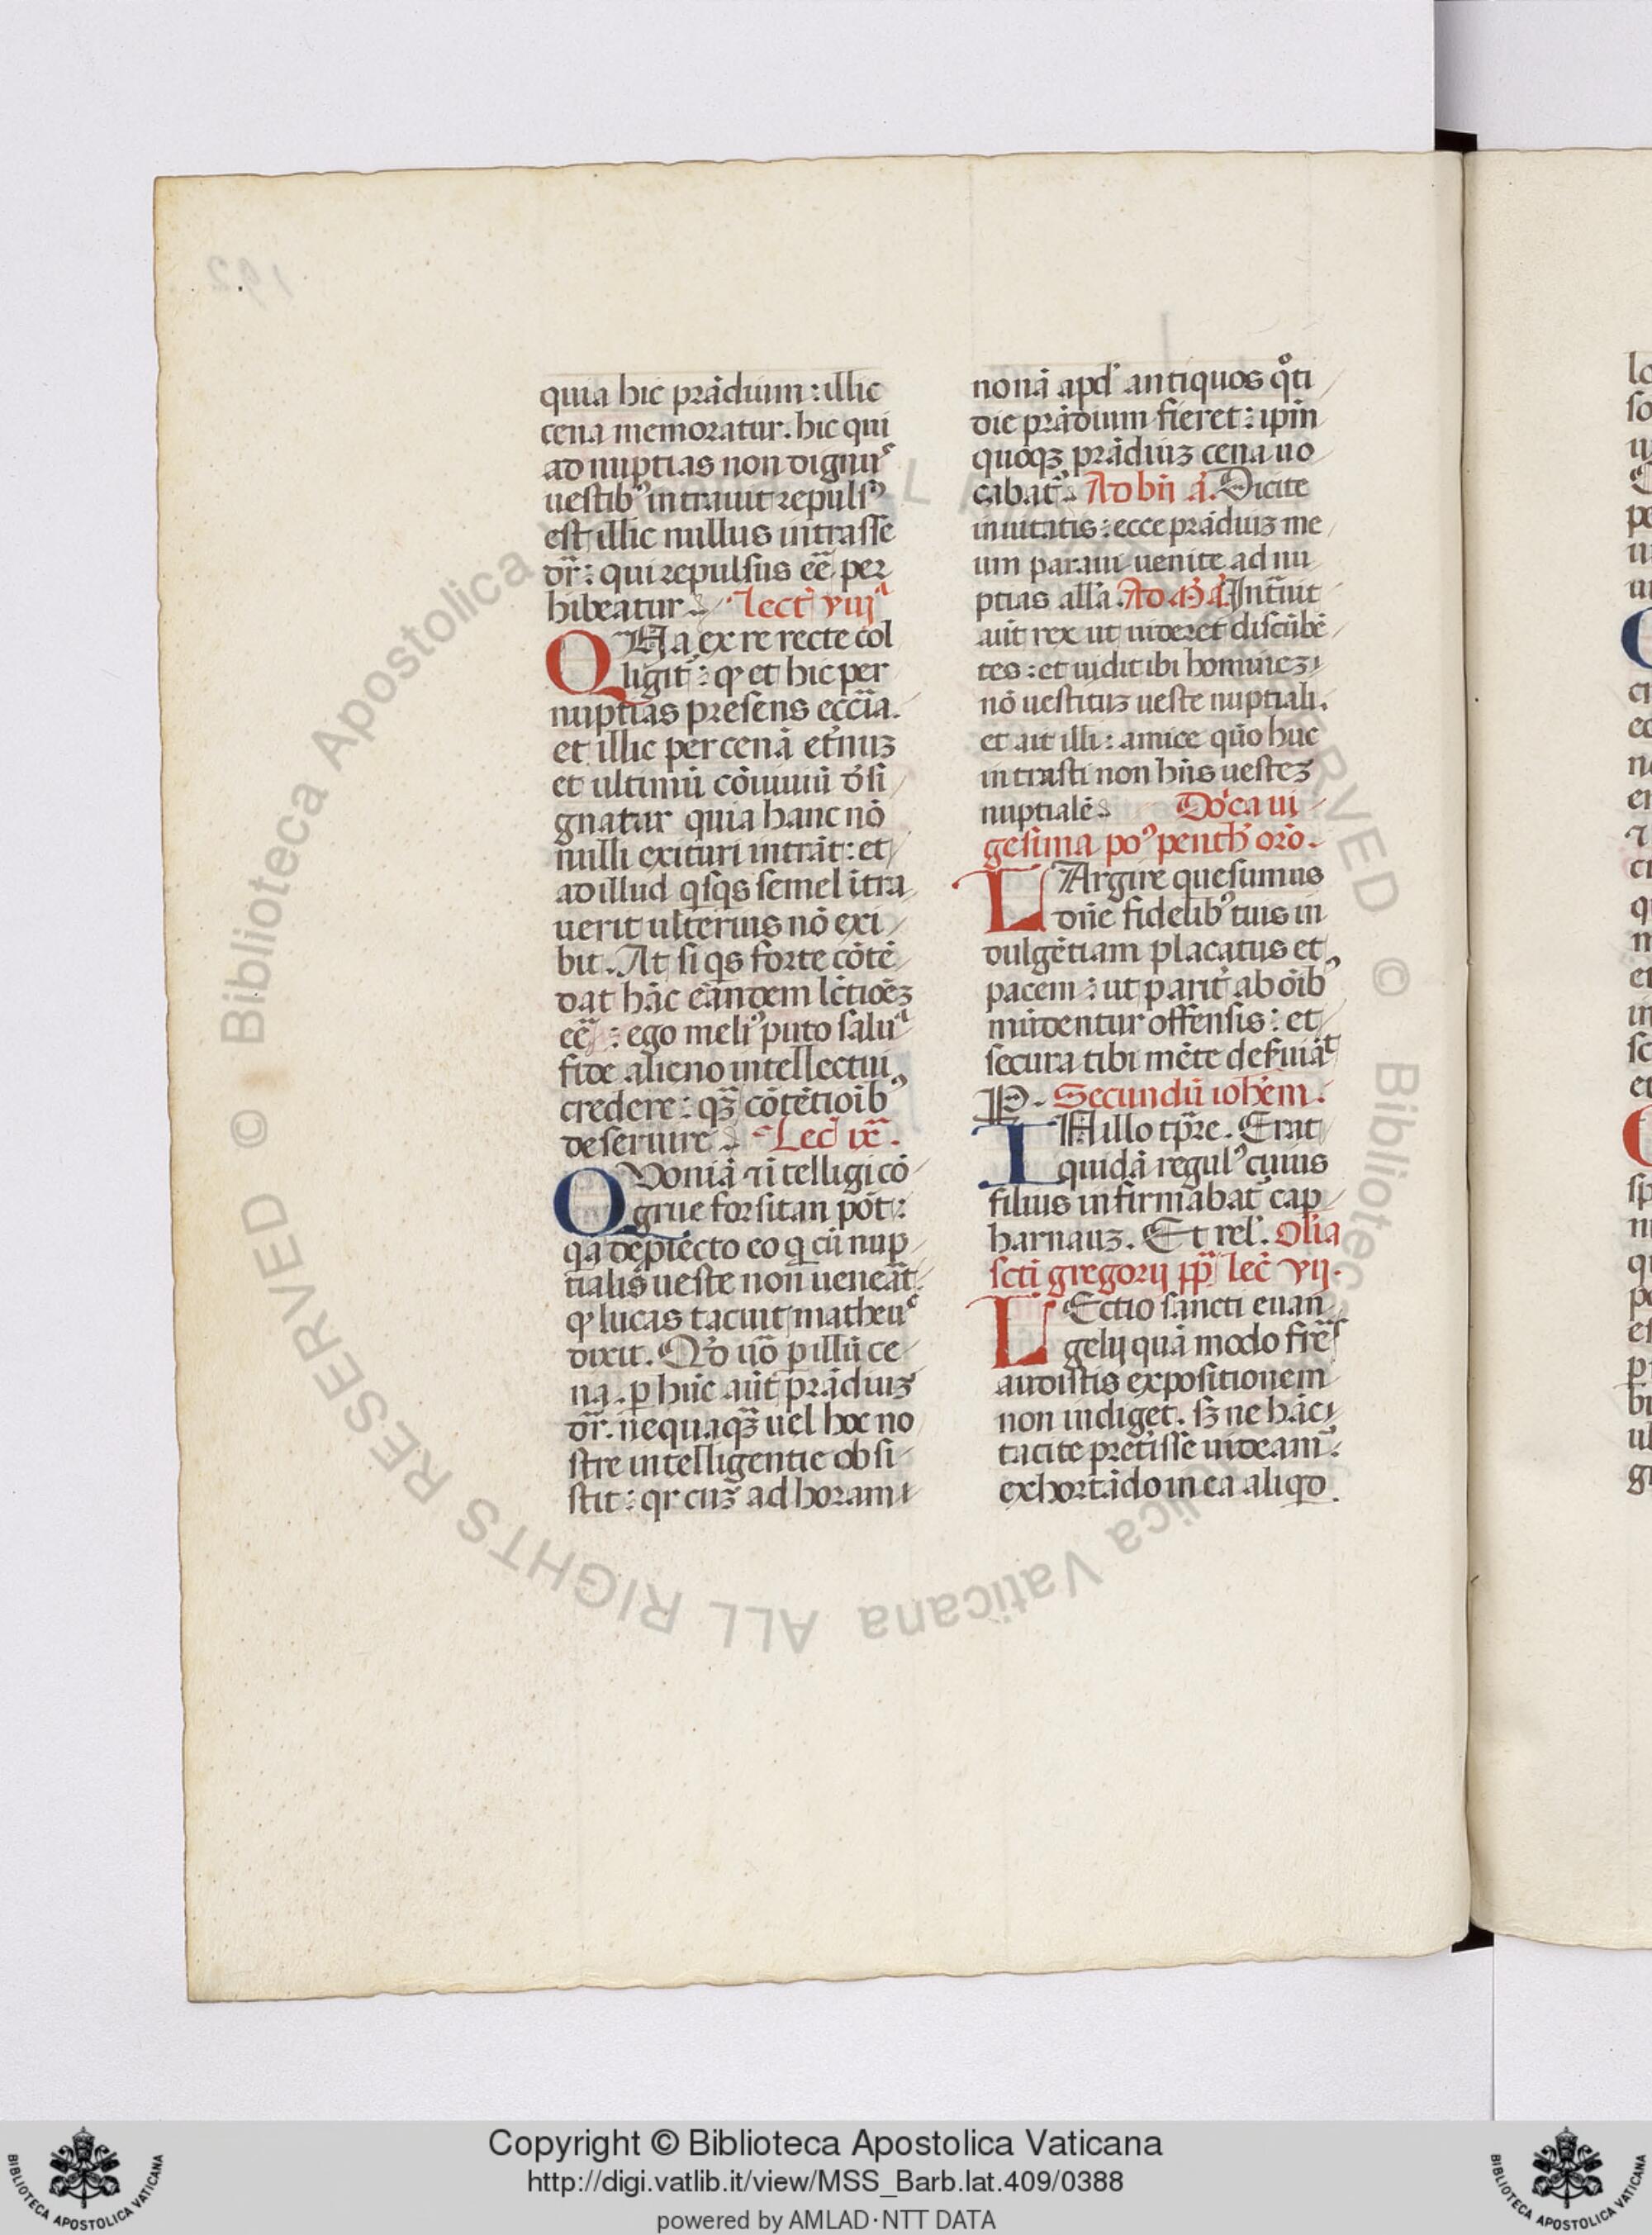 quia hic prādium : illic
cena memoratur. hic qui
ad nuptias non dignis
uestib⁹ intrauit repuls⁹
est illic nullus intrasse
dr̄ : qui repulsus eē per
hibeatur. Lect viijª
QVia ex re recte col
ligit̄ : ꝙ et hic per
nuptias presens ecc̄ia.
et illic per cenā et̄nuꝫ
et ultimū cōuiuiū dēsi
gnatur quia hanc nō
nulli exituri intrāt : et
ad illud q̄sq̄s semel ītra
uerit ulterius nō exi
bit. At si q̄s forte cōtē
dat hāc eāndem lc̄tiōeꝫ
eē : ego meli⁹ puto saluª
fide alieno intellectui
credere : qꝫ̄ cōtētiōib⁹
deseruire. Lec̄ ixª.
QVoniā ītelligi cō
grue forsitan pōt :
qa deꝓiecto eo q̄ cū nup
tiali ueste non ueneāt
ꝙ lucas tacuit matheu⁹
dixit. Qd̄ uō ꝑ illū ce
na. ꝑ hūc aūt prādiuꝫ
dr̄. nequaqꝫ̄ uel hoc no
stre intelligentie obsi
stit : qr cuꝫ ad horam
nonā apd̄ antiquos qͦti
die prādium fieret : ipm̄
quoqꝫ prādiuꝫ cena uo
cabat̄. Ad bn̄ a͞. Dicite
inuitatis : ecce prādiuꝫ me
um paraui uenite ad nu
ptias all̄a. Ad M̄ a͞. Int̄uit
aūt rex ut uideret discūbē
tes : et uidit ibi homineꝫ
nō uestituꝫ ueste nuptiali.
et ait illi : amice quō huc
intrasti non hn̄s uesteꝫ
nuptialē. Do͞ica ui
gesima po⁹ penth̄ oro͞.
LArgire quesumus
dn̄e fidelib⁹ tuis in
dulgētiam placatus et
pacem : ut parit̄ ab oīb⁹
mūdentur offensis : et
secura tibi mēte deseruiāt
P. Secundū ioh̄em.
IN illo tp̄re. Erat
quidā regul⁹ cuius
filius infirmabat̄ cap
harnauꝫ. Et rel. Om̄lia
sc̄ti gregorij pp̄ lec̄ vij.
LEctio sancti euan
gelij quā modo fr̄es
audistis expositionem
non indiget. sꝫ ne hāc
tacite pret̄isse uideam̄ :
exhortādo in ea aliqd
© Biblioteca Apostolica Vaticana ALL RIGHTS RESERVED
Copyright © Biblioteca Apostolica Vaticana
http://digi.vatlib.it/view/MSS_Barb.lat.409/0388
powered by AMLAD·NTT DATA
BIBLIOTECA APOSTOLICA VATICANA
BIBLIOTECA APOSTOLICA VATICANA